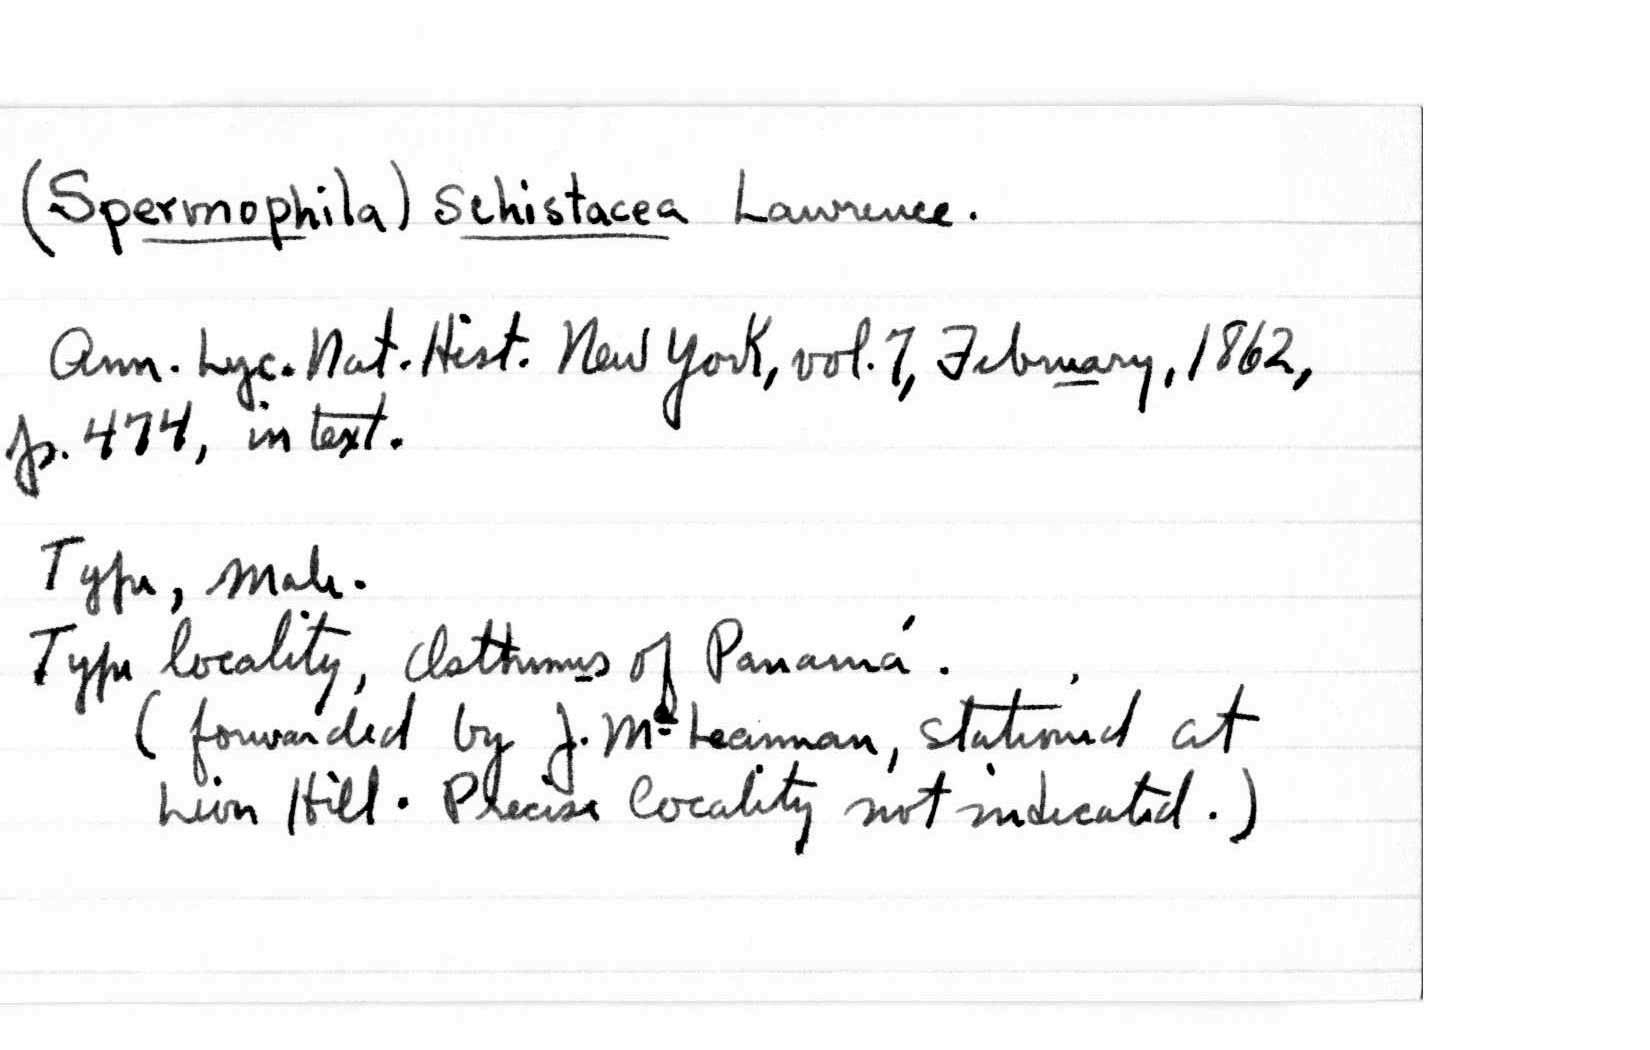 (Spermophila) schistacea Lawrence.
Ann. Lyc. Nat. Hist. New York, vol. 7, February, 1862,
p. 474, in text.
Type, male.
Type locality, Isthmus of Panamá.
(forwarded by J. Mc Leannan, stationed at
Lion Hill. Precise locality not indicated.)